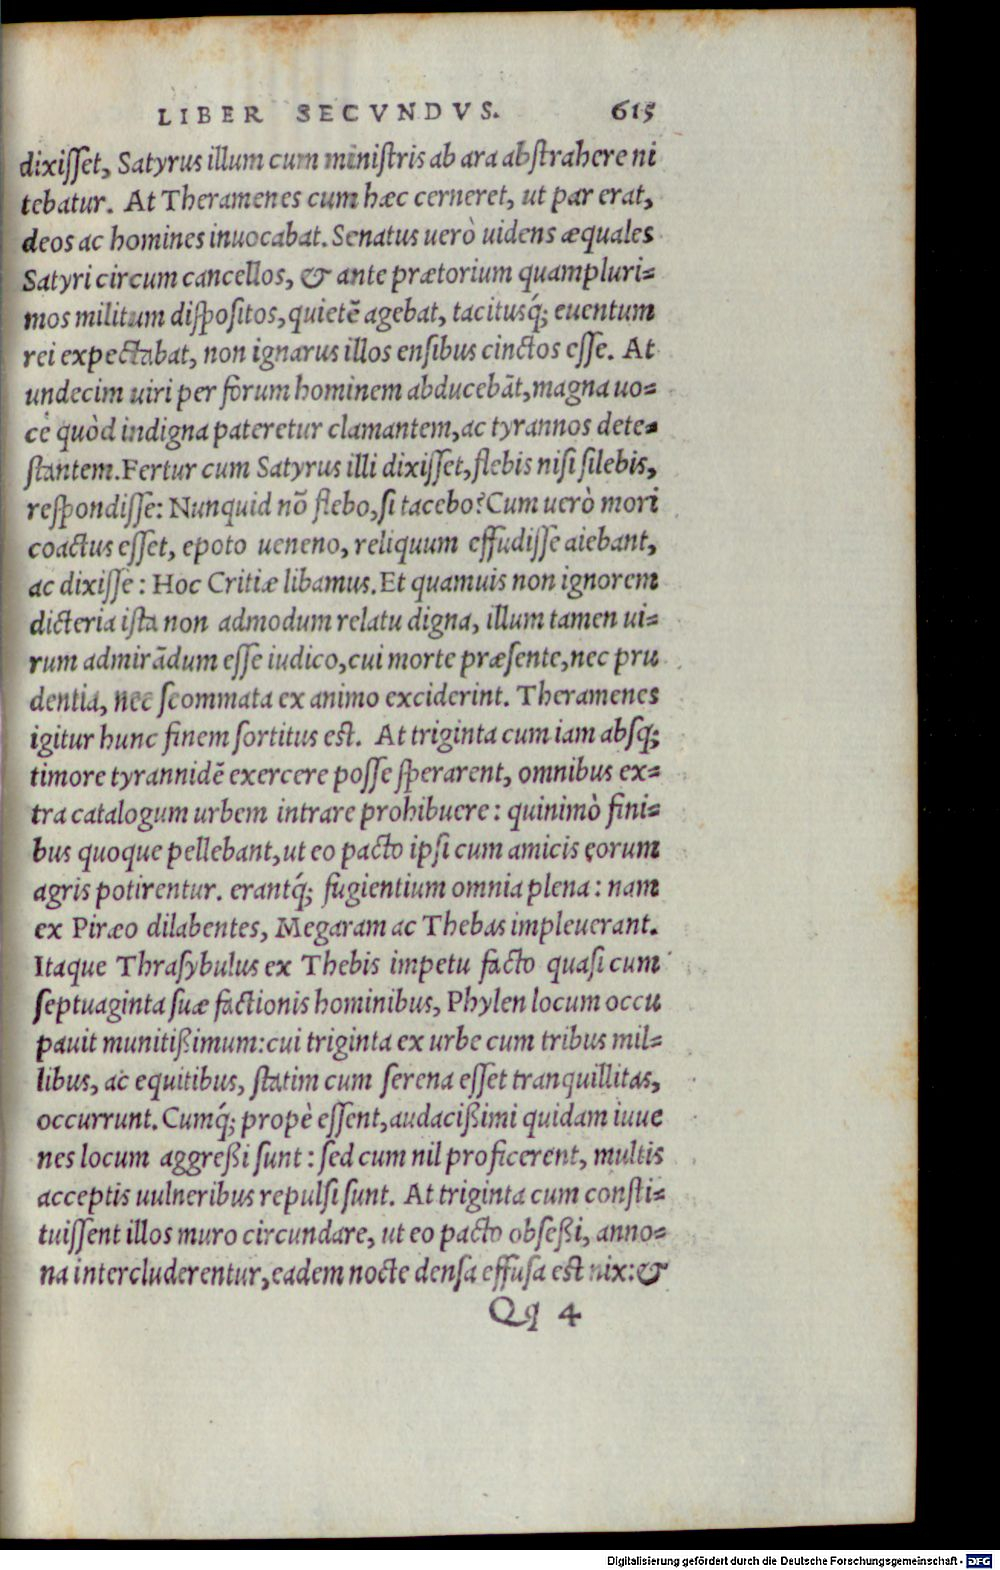 LIBER SECVNDVS. 615
dixiſſet, Satyrus illum cum miniſtris ab ara abſtrahere ni
tebatur. At Theramenes cum hæc cerneret, ut par erat,
deos ac homines inuocabat. Senatus uerò uidens æquales
Satyri circum cancellos, & ante prætorium quampluri=
mos militum diſpoſitos, quietē agebat, tacitusq́; euentum
rei expectabat, non ignarus illos enſibus cinctos eſſe. At
undecim uiri per forum hominem abducebāt, magna uo=
ce quòd indigna pateretur clamantem, ac tyrannos dete=
ſtantem. Fertur cum Satyrus illi dixiſſet, flebis niſi ſilebis,
reſpondiſſe: Nunquid nō flebo, ſi tacebo? Cum uerò mori
coactus eſſet, epoto ueneno, reliquum effudiſſe aiebant,
ac dixiſſe: Hoc Critiæ libamus. Et quamuis non ignorem
dicteria iſta non admodum relatu digna, illum tamen ui=
rum admirādum eſſe iudico, cui morte præſente, nec pru
dentia, nec ſcommata ex animo exciderint. Theramenes
igitur hunc finem ſortitus eſt. At triginta cum iam absq;
timore tyrannidē exercere poſſe ſperarent, omnibus ex=
tra catalogum urbem intrare prohibuere: quinimò fini=
bus quoque pellebant, ut eo pacto ipſi cum amicis eorum
agris potirentur. erantq́; fugientium omnia plena: nam
ex Piræo dilabentes, Megaram ac Thebas impleuerant.
Itaque Thraſybulus ex Thebis impetu facto quaſi cum
ſeptuaginta ſuæ factionis hominibus, Phylen locum occu
pauit munitißimum: cui triginta ex urbe cum tribus mil=
libus, ac equitibus, ſtatim cum ſerena eſſet tranquillitas,
occurrunt. Cumq́; propè eſſent, audacißimi quidam iuue
nes locum aggreßi ſunt: ſed cum nil proficerent, multis
acceptis uulneribus repulſi ſunt. At triginta cum conſti=
tuiſſent illos muro circundare, ut eo pacto obſeßi, anno=
na intercluderentur, eadem nocte denſa effuſa eſt nix: &
Qq 4
Digitalisierung gefördert durch die Deutsche Forschungsgemeinschaft - DFG